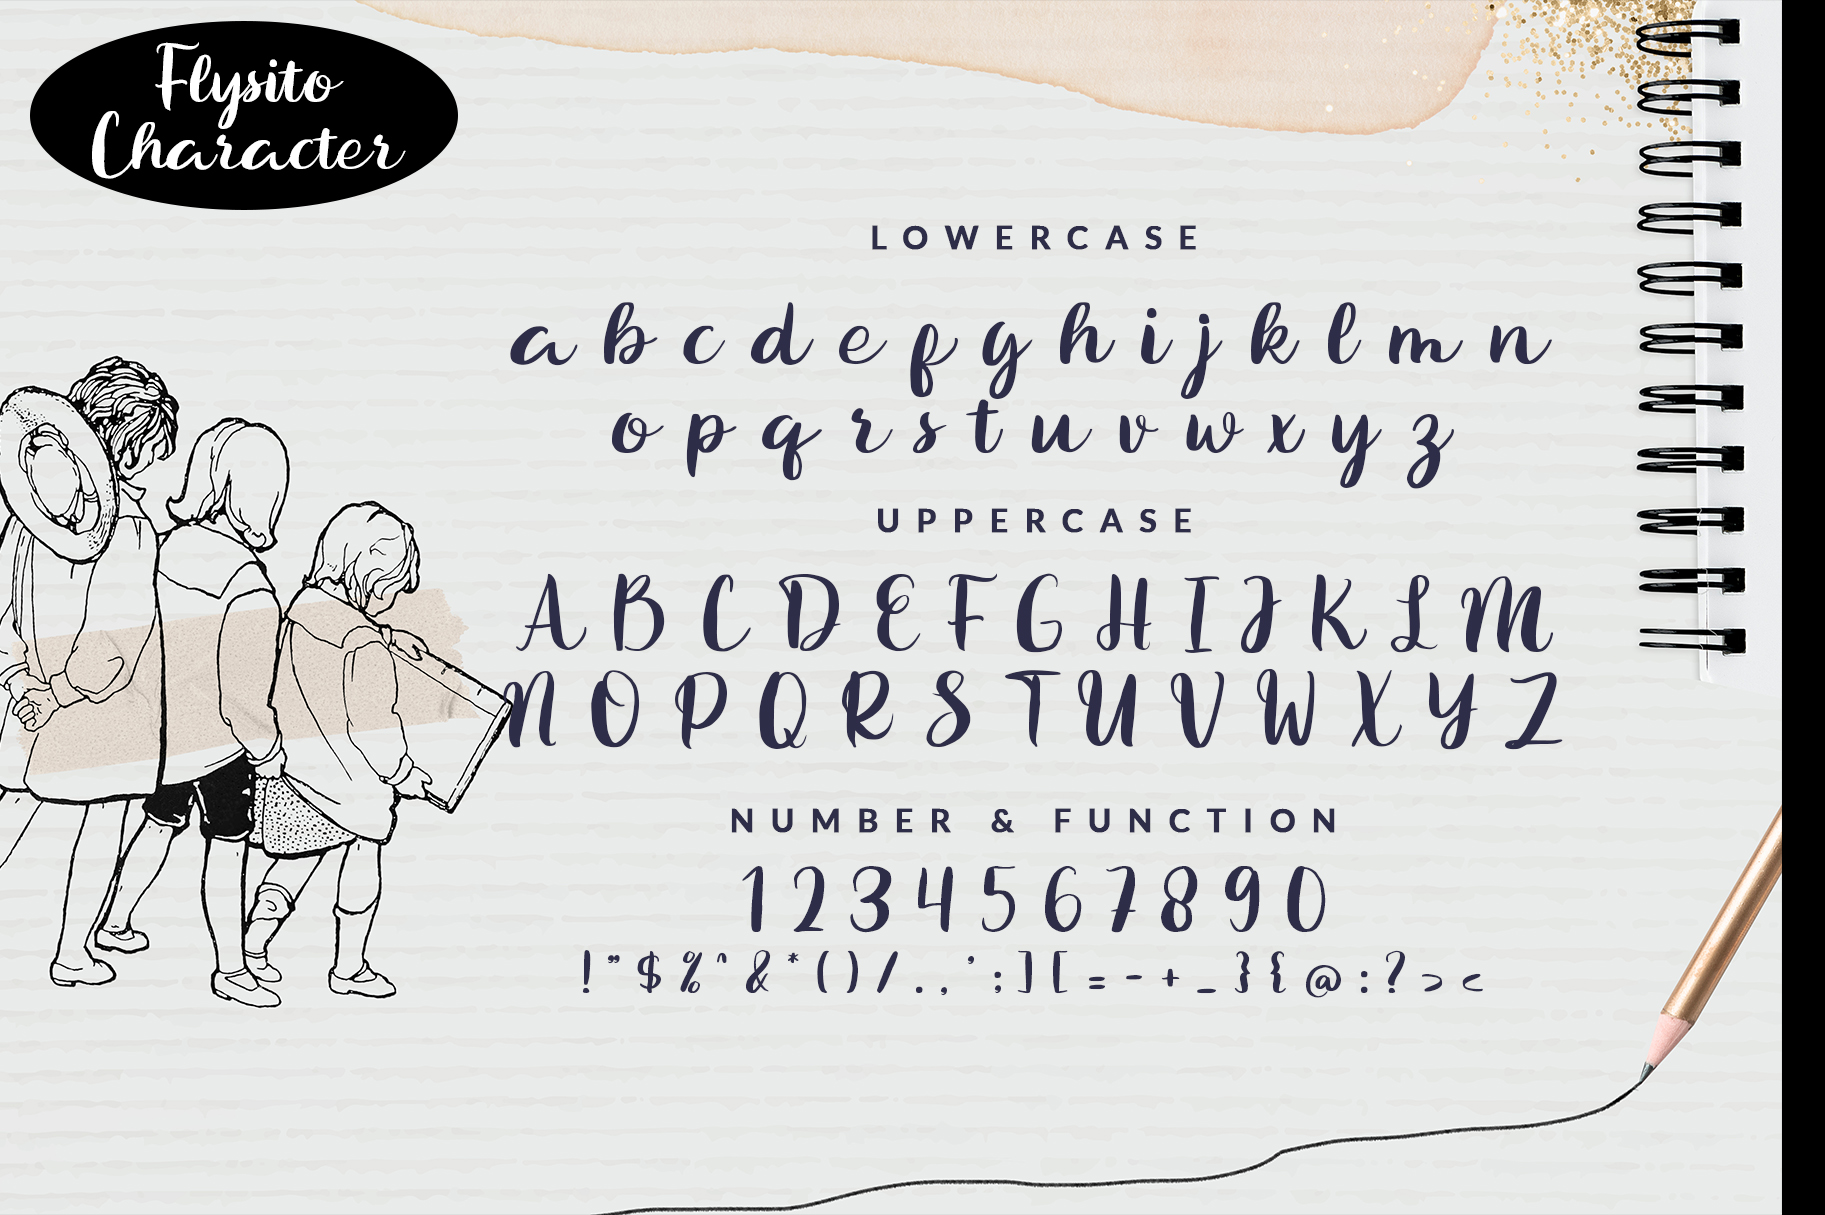 Flysito
Character
LOWERCASE
a b c d e f g h i j k l m n
o p q r s t u v w x y z
UPPERCASE
A B C D E F G H I J K L M
N O P Q R S T U V W X Y Z
NUMBER & FUNCTION
1 2 3 4 5 6 7 8 9 0
! " $ % ^ & * ( ) / . , ' ; ] [ = - + _ } { @ : ? > <